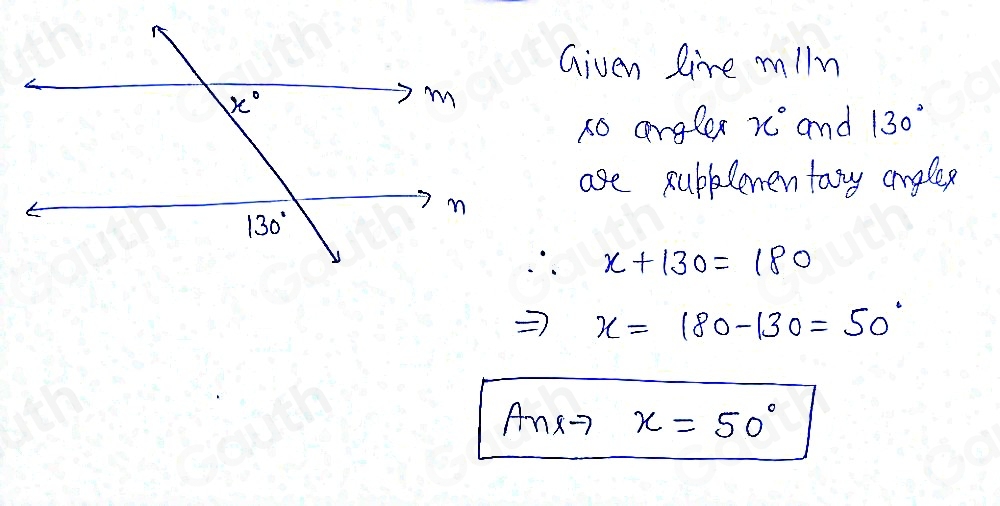 x°
m
n
130°
Given line m||n
so angles x° and 130°
are supplementary angles
∴ x+130= 180
⇒ x= 180-130= 50°
Ans→ x = 50°
Gauth